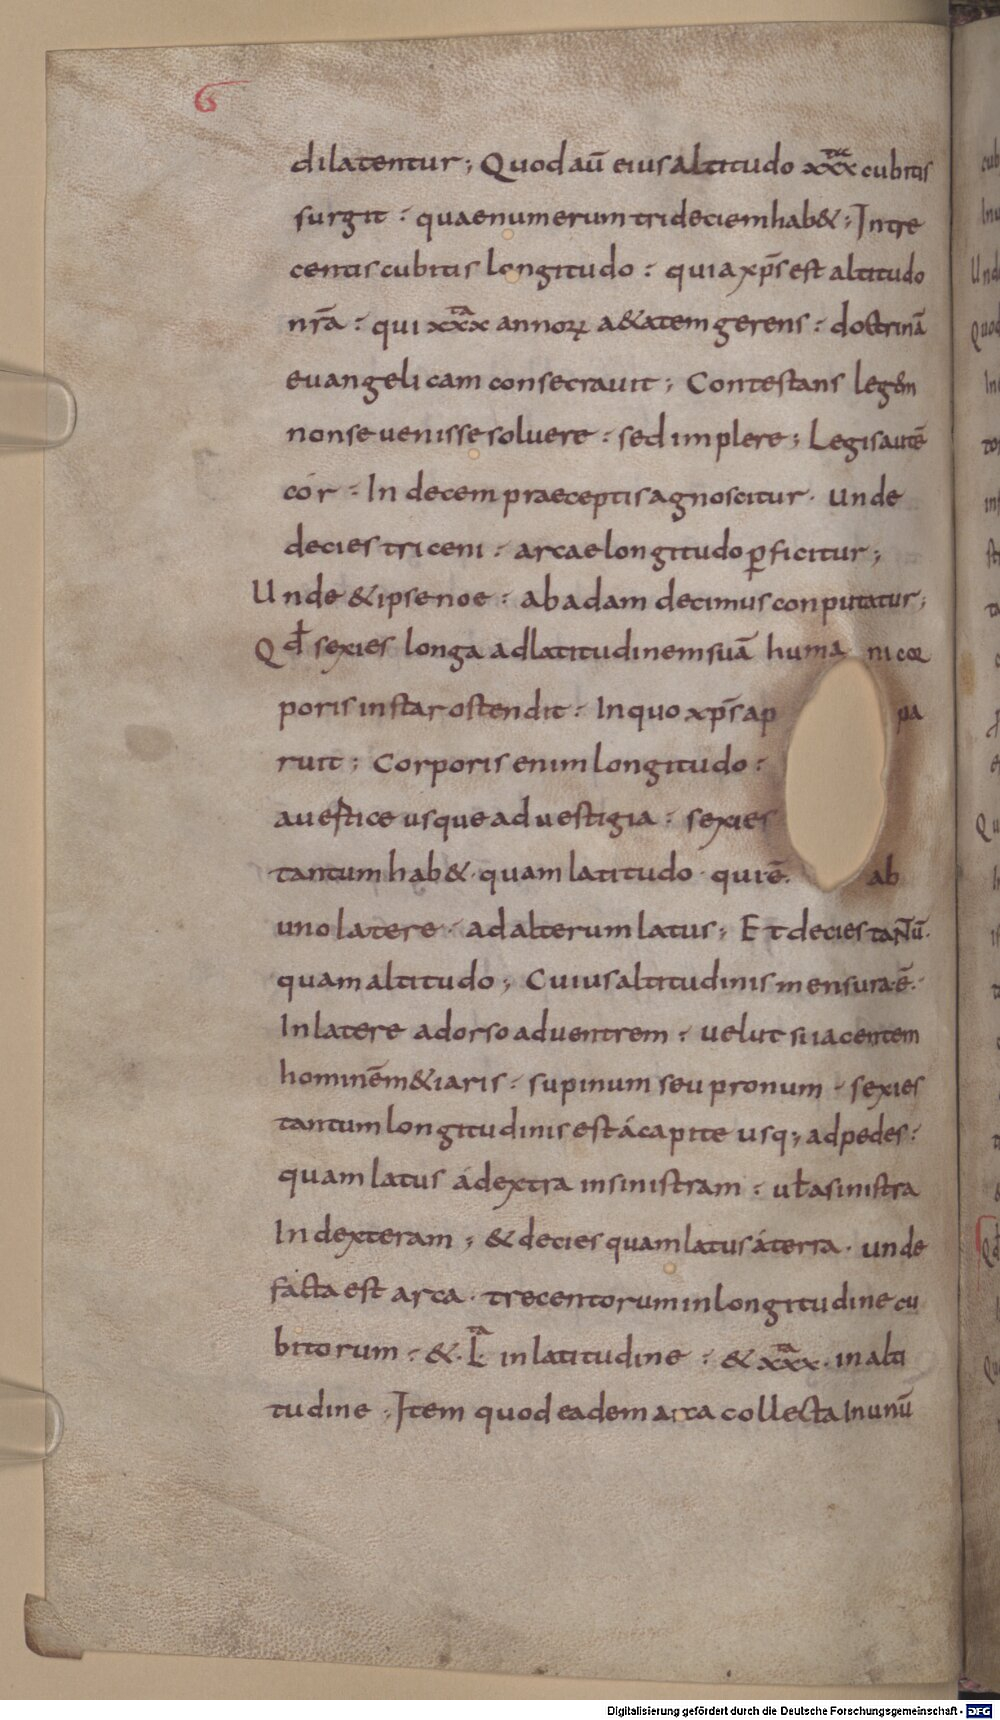 6
dilatentur; Quod aū eius altitudo xxx cubitis
surgit : quae numerum tri deciem hab&; In tre
centis cubitis longitudo : quia xp̄s est altitudo
nr̄a : qui xxx annoꝝ a&atem gerens : doctrinā
euangelicam consecrauit; Contestans legem
non se uenisse soluere : sed implere; Legis autē
cór : In decem praeceptis agnoscitur · Unde
decies triceni : arcae longitudo ꝑficitur;
Unde & ipse noe : ab adam decimus conputatur;
Qđ sexies longa ad latitudinem suā huma ni cor
poris instar ostendit : In quo xp̄s ap pa
ruit; Corporis enim longitudo :
a uestice usque ad uestigia : sexies
tantum hab& · quam latitudo · qui ē · ab
uno latere · ad alterum latus; Et decies tantū ·
quam altitudo; Cuius altitudinis mensura ē ·
In latere a dorso ad uentrem : uelut si iacentem
hominem &iaris : supinum seu pronum · sexies
tantum longitudinis est á capite usq; ad pedes :
quam latus á dextra in sinistram : uł a sinistra
In dexteram; & decies quam latus á terra · unde
facta est arca · trecentorum in longitudine cu
bitorum : & · L in latitudine : & xxx · in alti
tudine · Item quod eadem arca collecta In unū
Digitalisierung gefördert durch die Deutsche Forschungsgemeinschaft - DFG